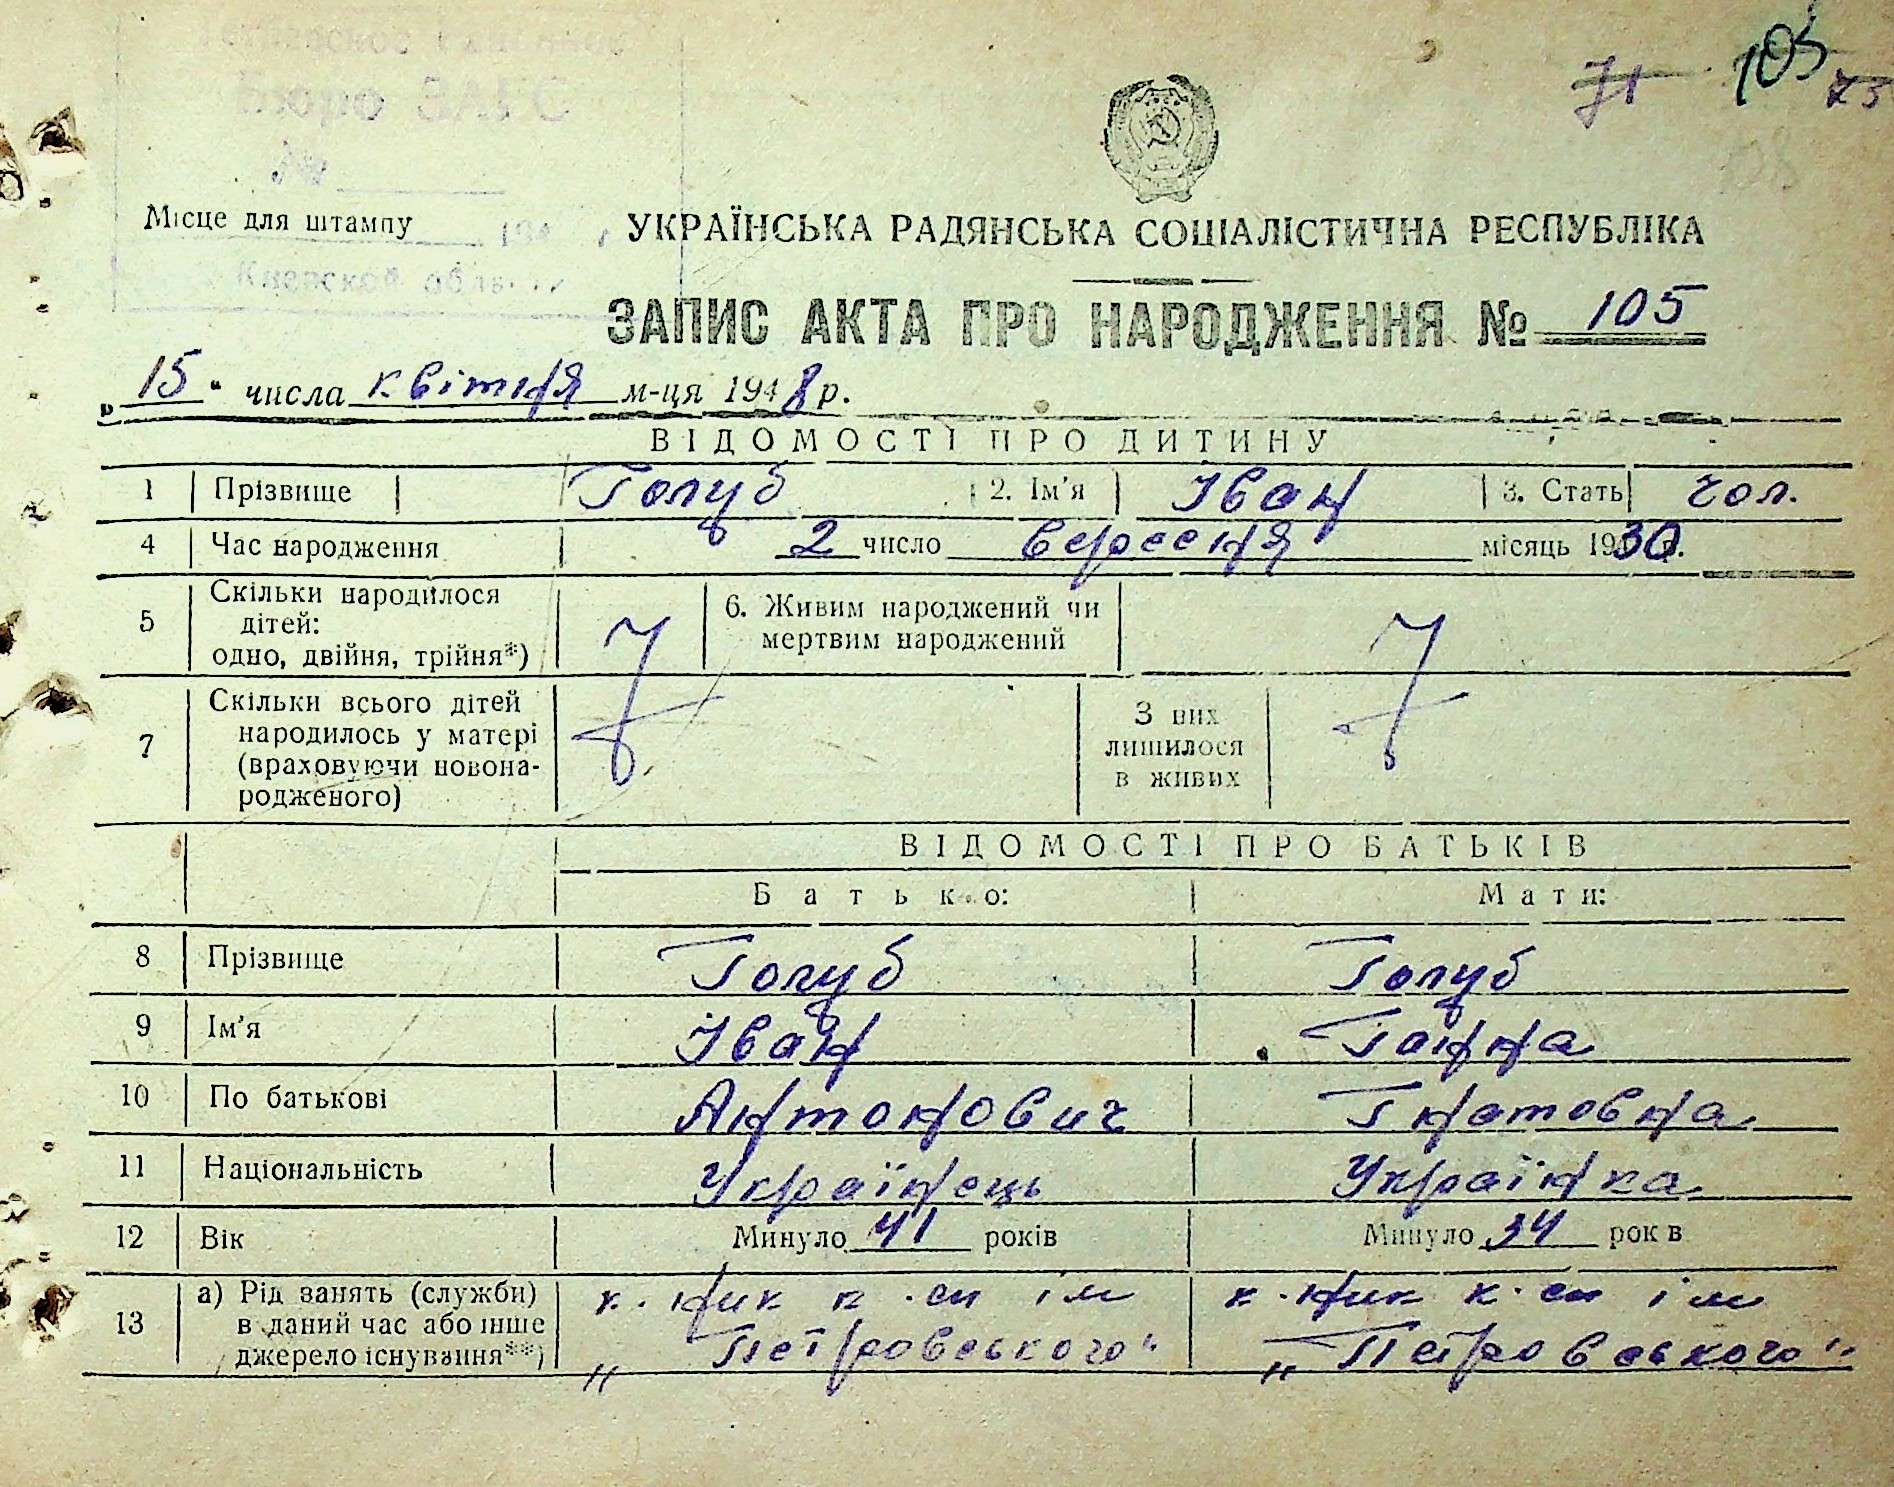 Бюро ЗАГС
№
Киевской
71 105 75
108
Місце для штампу
УКРАЇНСЬКА РАДЯНСЬКА СОЦІАЛІСТИЧНА РЕСПУБЛІКА
ЗАПИС АКТА ПРО НАРОДЖЕННЯ № 105
„15" числа квітня м-ця 1948 р.
ВІДОМОСТІ ПРО ДИТИНУ
1 Прізвище Голуб 2. Ім'я Іван 3. Стать чол.
4 Час народження 2 число вересня місяць 1930 р.
5 Скільки народилося
дітей:
одно, двійня, трійня*)
6. Живим народжений чи
мертвим народжений
7 Скільки всього дітей
народилось у матері
(враховуючи новона-
родженого)
З них
лишилося
в живих
ВІДОМОСТІ ПРО БАТЬКІВ
Батько: Мати:
8 Прізвище Голуб Голуб
9 Ім'я Іван Ганна
10 По батькові Антонович Гнатовна
11 Національність Українець Українка
12 Вік Минуло 41 років Минуло 34 рок в
13 а) Рід занять (служби)
в даний час або інше
джерело існування**)
к-ник к-сп ім
„Петровського"
к-ник к-сп ім
„Петровського"